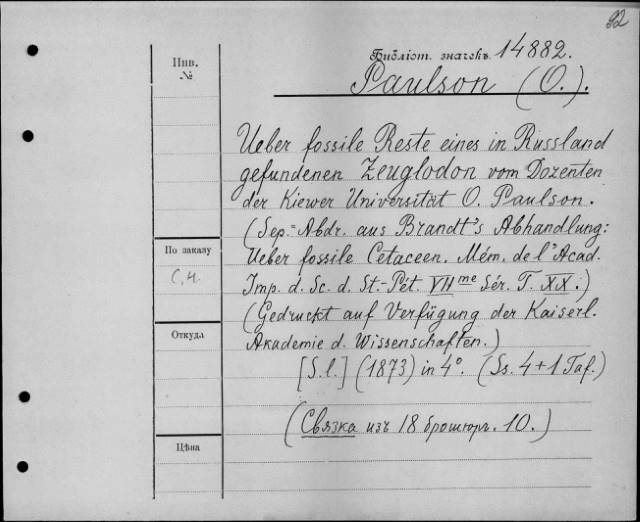 82
Инв.
№
Библіот. значекъ 14882.
Paulson (O.).
Ueber fossile Reste eines in Russland
gefundenen Zeuglodon vom Dozenten
der Kiewer Universität O. Paulson.
(Sep.=Abdr. aus Brandt's Abhandlung:
Ueber fossile Cetaceen. Mém. de l'Acad.
Imp. d. Sc. d. St.-Pét. VII me Sér. T. XX.)
(Gedruckt auf Verfügung der Kaiserl.
Akademie d. Wissenschaften.)
[S.l.] (1873) in 4°. (Ss. 4+1 Taf.)
(Связка изъ 18 брошюръ. 10.)
По заказу
С.ч.
Откуда
Цѣна